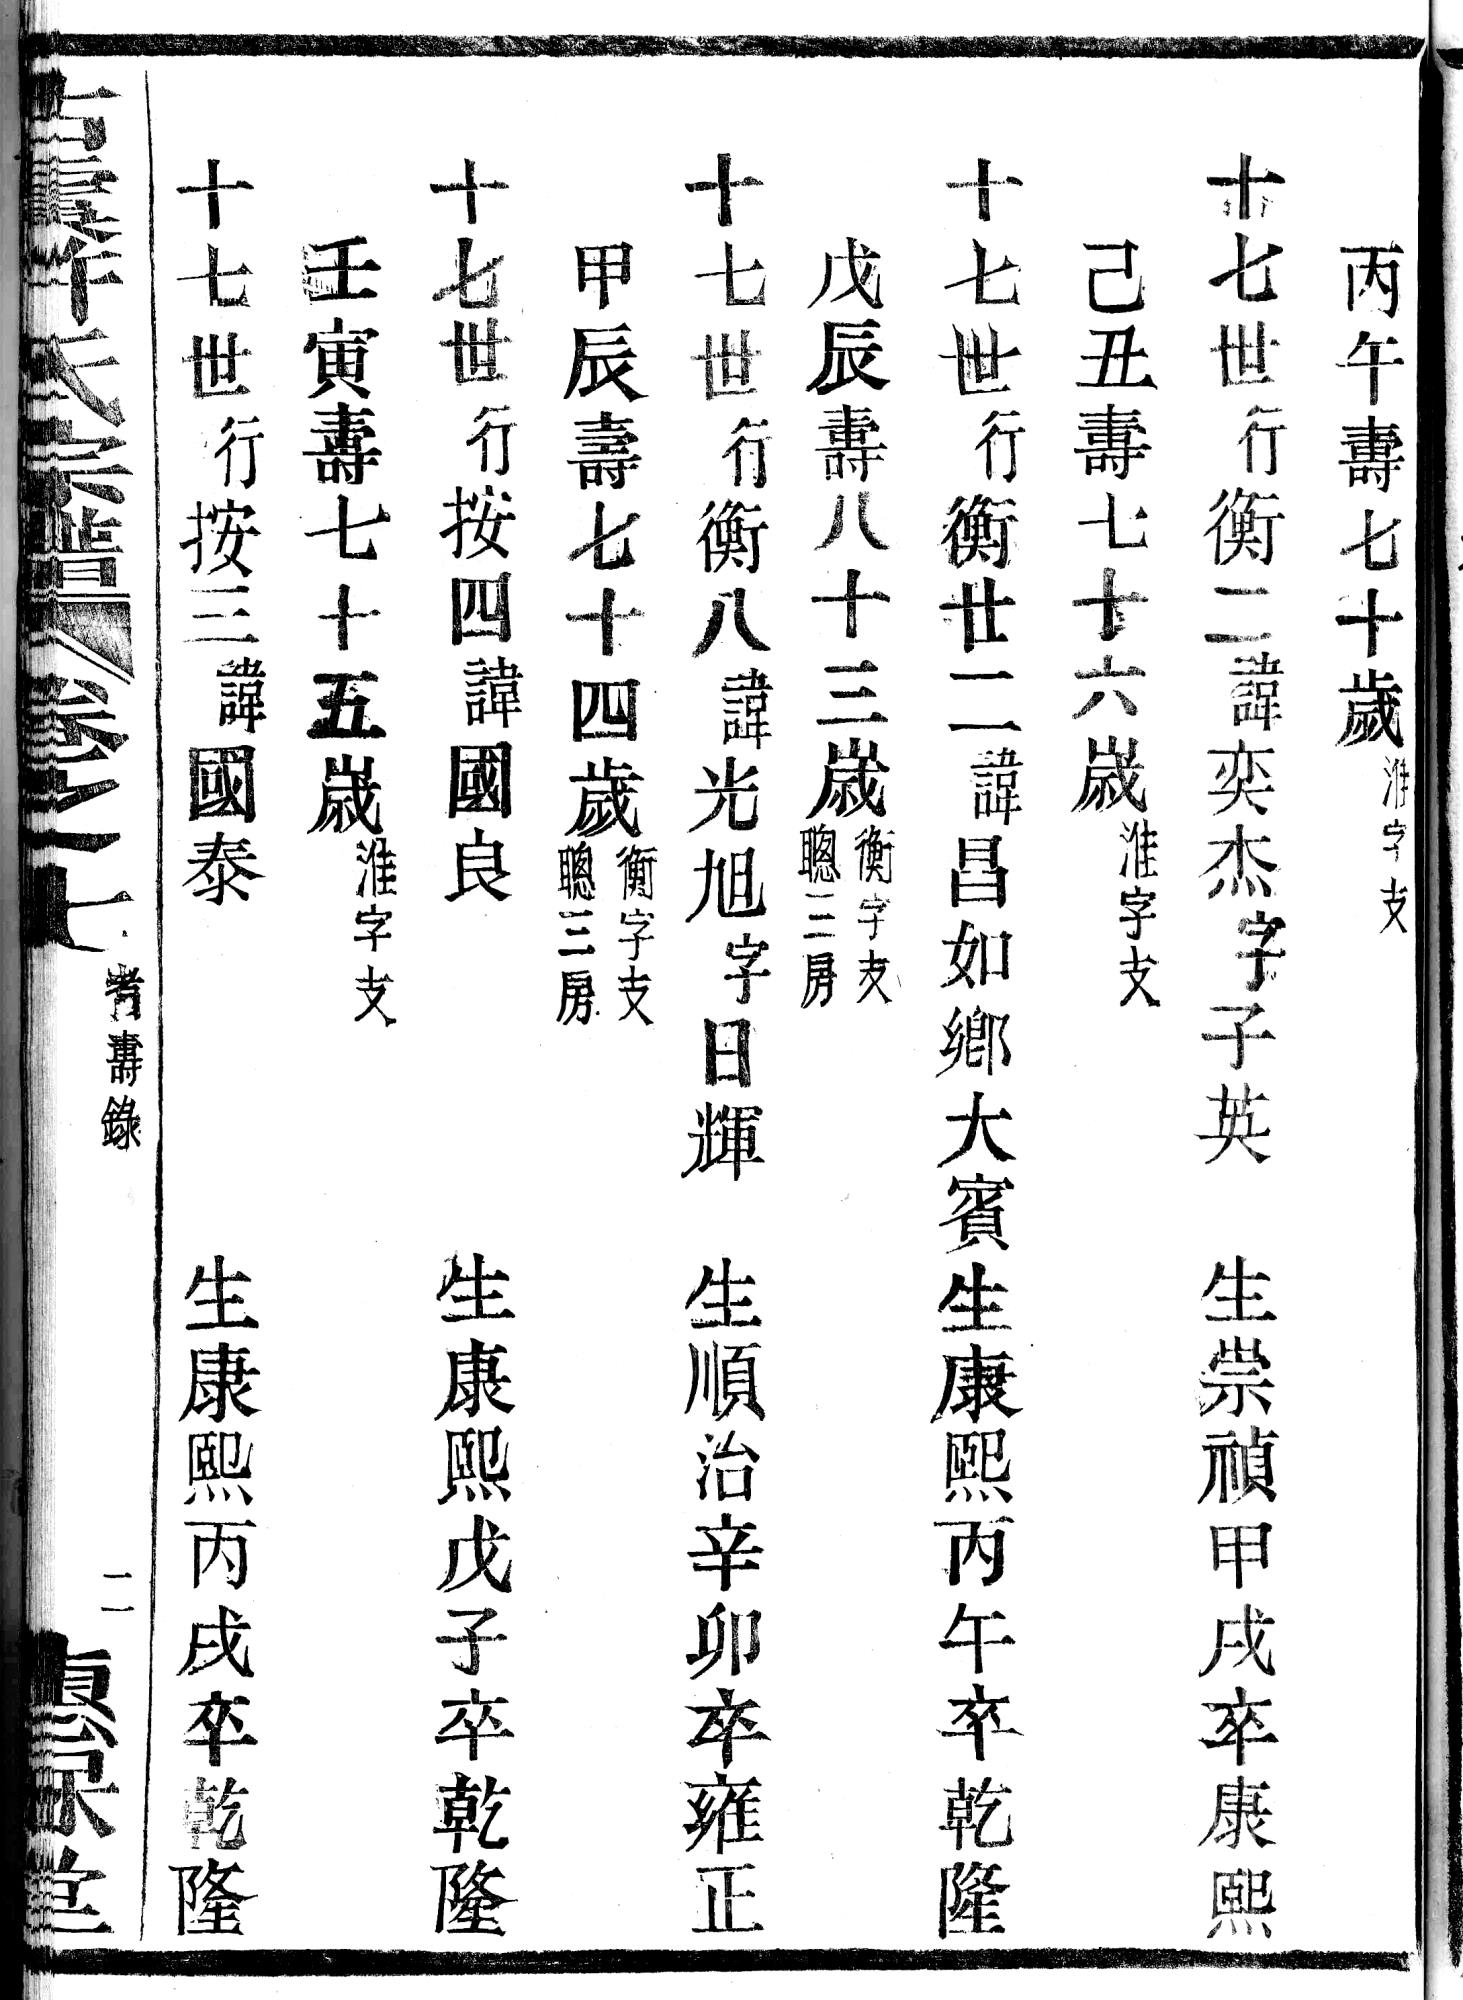 丙午壽七十歲淮字支
十七世行衡二諱奕杰字子英　生崇禎甲戌卒康熙
己丑壽七十六歲淮字支
十七世行衡廿二諱昌如鄉大賓生康熙丙午卒乾隆
戊辰壽八十三歲衡字支
聰三房
十七世行衡八諱光旭字日輝　生順治辛卯卒雍正
甲辰壽七十四歲衡字支
聰三房
十七世行按四諱國良　生康熙戊子卒乾隆
壬寅壽七十五歲淮字支
十七世行按三諱國泰　生康熙丙戌卒乾隆
氏宗譜　卷之七　耆壽錄　二　堂